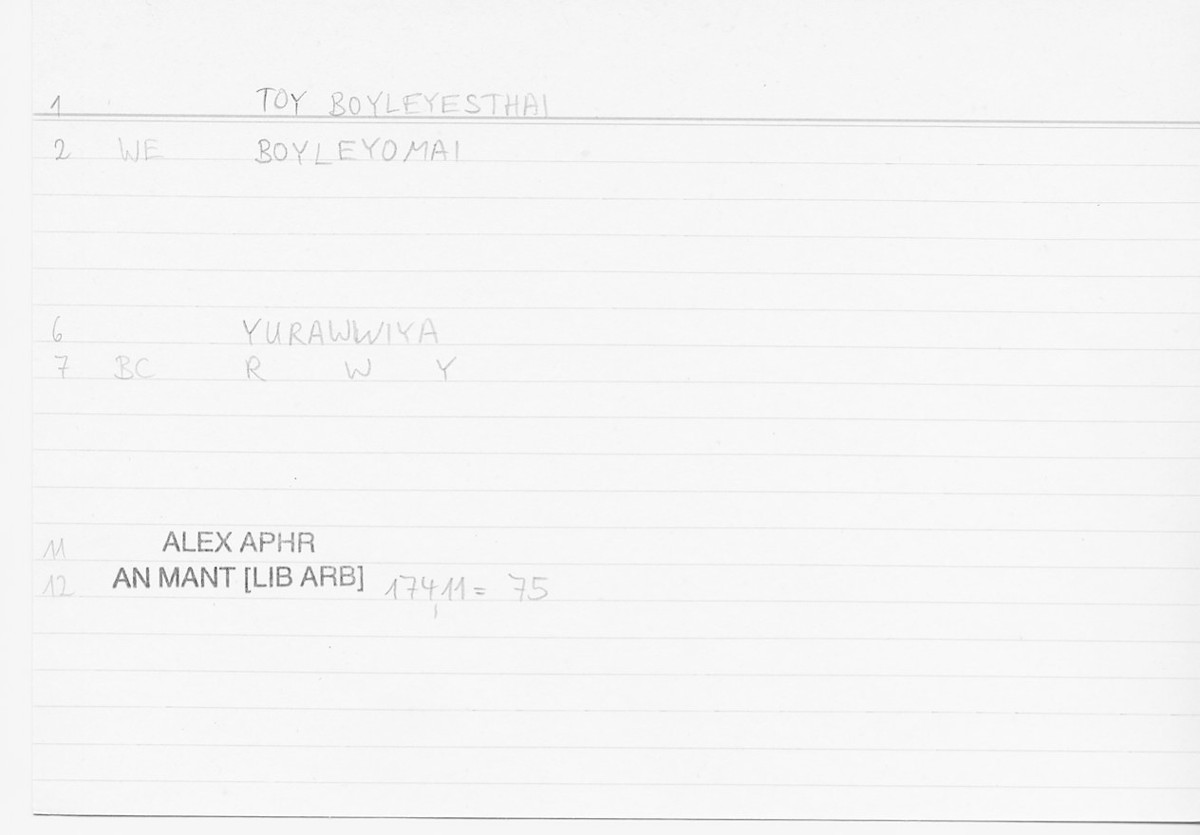 1 TOY BOYLEYESTHAI
2 WE BOYLEYOMAI
6 YURAWWIYA
7 BC R W Y
11 ALEX APHR
12 AN MANT [LIB ARB] 174,11 = 75